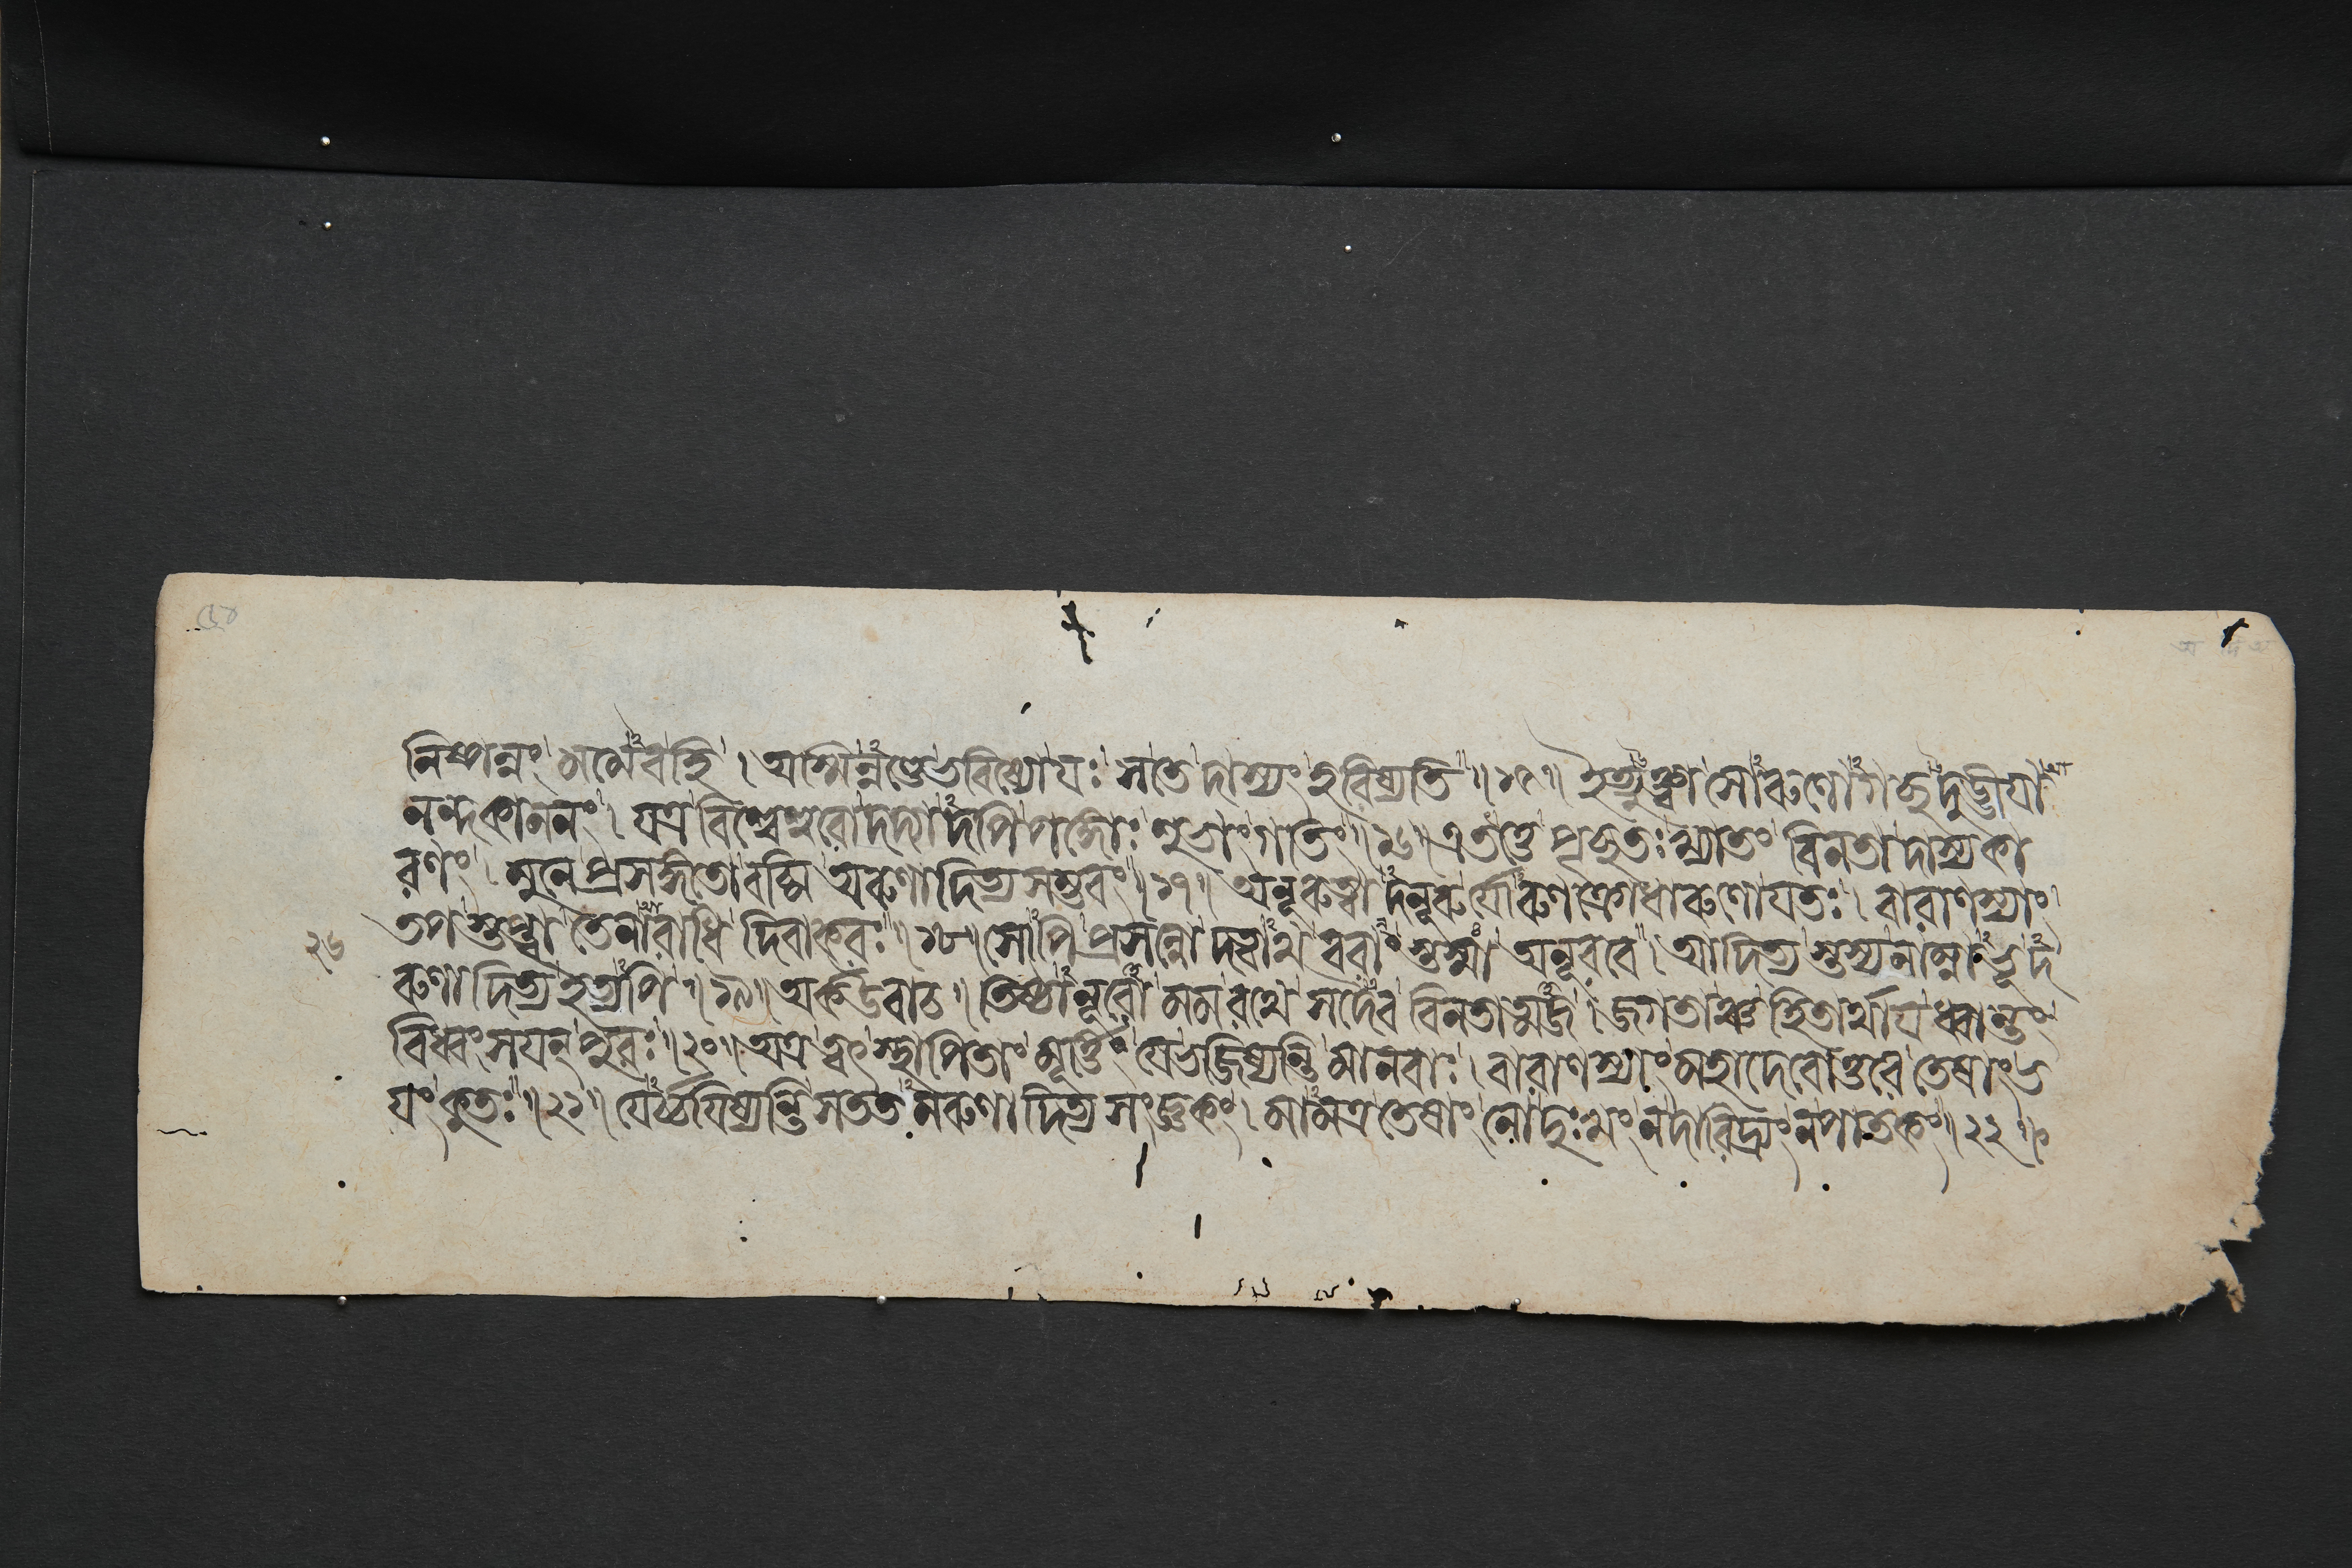 নিষ্পন্নং মমৈবহি । অস্মিন্নণ্ডেভবিষ্যোযঃ সতে দাস্যং হরিষ্যতি ॥ ১৫ ॥ ইত্যুক্ত্বা সোঽরুণোঽগচ্ছদুড্ডীযা
নন্দকাননং । যত্র বিশ্বেশ্বরোদদ্যাদপিপঙ্গোঃ শুভাংগতিং ॥ ১৬ ॥ এতত্তে পৃচ্ছতঃখ্যাতং বিনতাদাস্যকা
রণং । মুনে প্রসঙ্গতোবচ্মি অরুণাদিত্যসম্ভবং ॥ ১৭ ॥ অনূরুত্বাদনূরুর্যোঽরুণক্রোধারুণোযতঃ । বারাণস্যাং
তপস্তপ্ত্বা তেনারাধি দিবাকরঃ ॥ ১৮ ॥ সোঽপি প্রসন্নো দত্বাথ বরাংস্তস্মা অনূরবে । আদিত্যস্তস্যনাম্নাঽভূদ
রুণাদিত্যইত্যপি ॥ ১৯ ॥ অর্কউবাচ ॥ তিষ্ঠানূরোমমরথে সদৈব বিনতাত্মজ । জগতাঞ্চহিতার্থাযধ্বান্তং
বিধ্বংসযন্পুরঃ ॥ ২০ ॥ অত্র ত্বৎস্থাপিতাংমূর্ত্তিং যেভজিষ্যন্তিমানবাঃ । বারাণস্যাংমহাদেবোত্তরেতেষাংভ
যংকুতঃ ॥ ২১ ॥ যেঽর্চ্চযিষ্যন্তিসততমরুণাদিত্যসংজ্ঞকং । মামত্রতেষাংনোদুঃখংনদারিদ্র্যংনপাতকং ॥ ২২ ॥
২৬